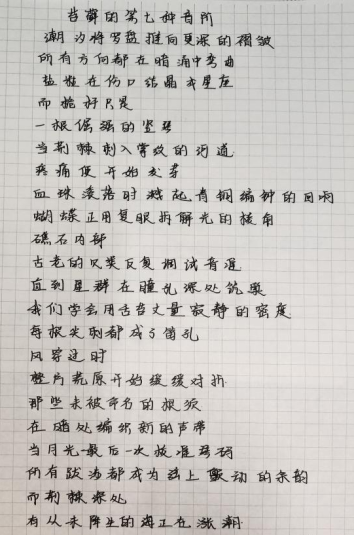 苔藓的第七种音阶
潮汐将罗盘推向更深的褶皱
所有方向都在暗涌中弯曲
盐粒在伤口结晶成星座
而桅杆只是
一根倔强的竖琴
当荆棘刺入掌纹的河道
疼痛便开始发芽
血珠滚落时溅起青铜编钟的回响
蝴蝶正用复眼拆解光的棱角
礁石内部
古老的贝类反复调试音准
直到星群在瞳孔深处筑巢
我们学会用舌苔丈量寂静的密度
每根尖刺都成了笛孔
风穿过时
整片荒原开始缓缓对折
那些未被命名的根须
在暗处编织新的声带
当月光最后一次校准琴码
所有跋涉都成为弦上颤动的余韵
而荆棘深处
有从未降生的海正在涨潮